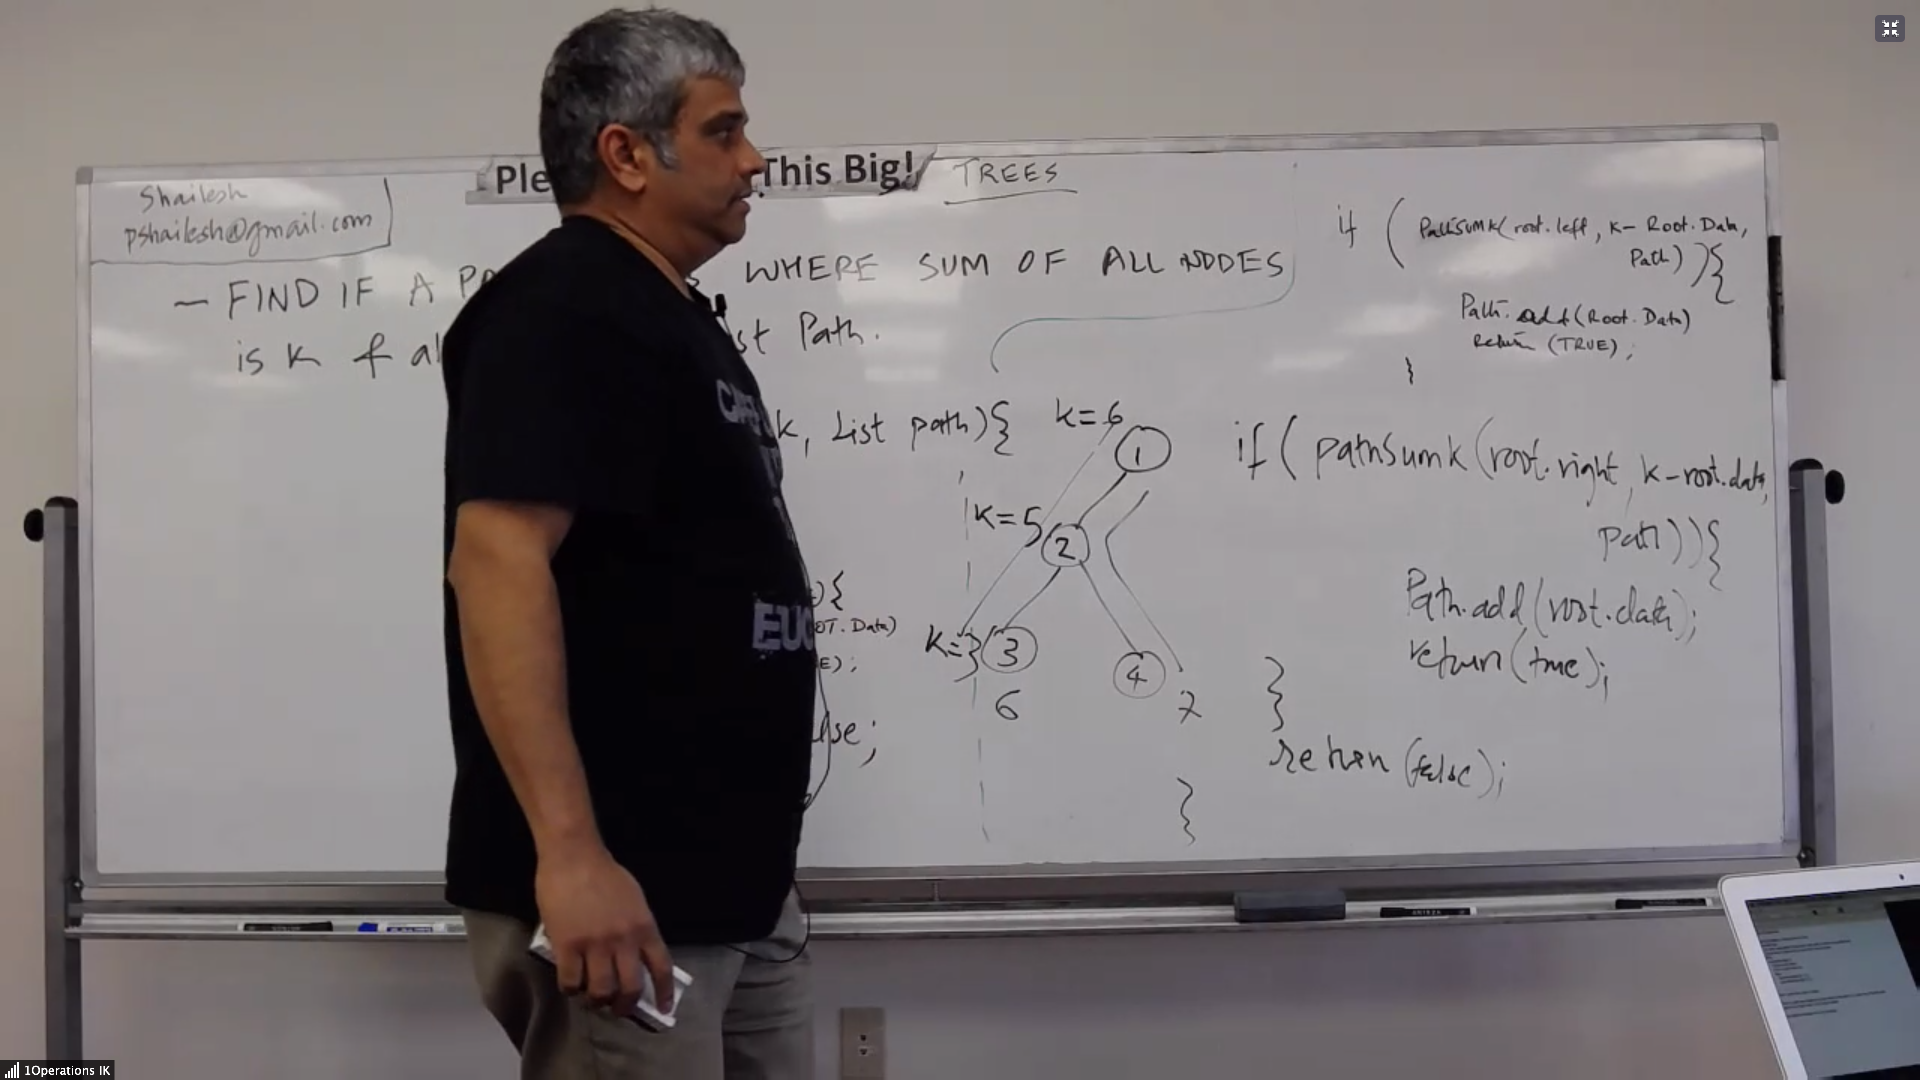 Ple This Big!
TREES
Shailesh
pshailesh@gmail.com
– FIND IF A PA WHERE SUM OF ALL NODES
is K & al st Path.
k, List path){
){
OT. Data)
E);
lse;
K=6
1
K=5
2
K=3
3
4
6
7
if (PathSumk(root.left, K- Root.Data,
Path)){
Path.add(Root.Data)
Return (TRUE);
}
if (pathSumk(root.right, k-root.data,
path)){
Path.add(root.data);
return(true);
}
return (false);
}
CA
EUC
1Operations IK